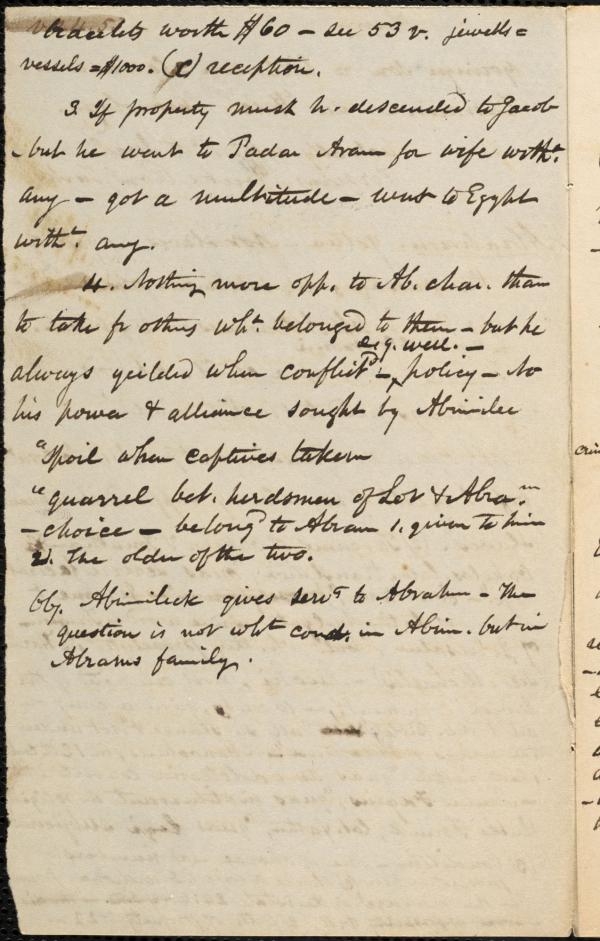 bracelets worth $60 – see 53 v. jewells =
vessels = $1000. (c) reception.
3. If property much h. descended to Jacob
– but he went to Padan Aram for wife witht.
any – got a multitude – went to Egypt
witht. any.
4. Nothing more opp. to Ab. char. than
to take fr others wht. belonged to them – but he
e.g. well. –
always yeilded when conflictd – policy – So
his power & alliance sought by Abimilec
"Spoil when captives taken
"quarrel bet. herdsmen of Lot & Abra.m
– choice – belongd to Abram 1. given to him
2. The older of the two.
Obj. Abimileck gives servts to Abrahm – The
question is not wht cond. in Abim. but in
Abrams family.